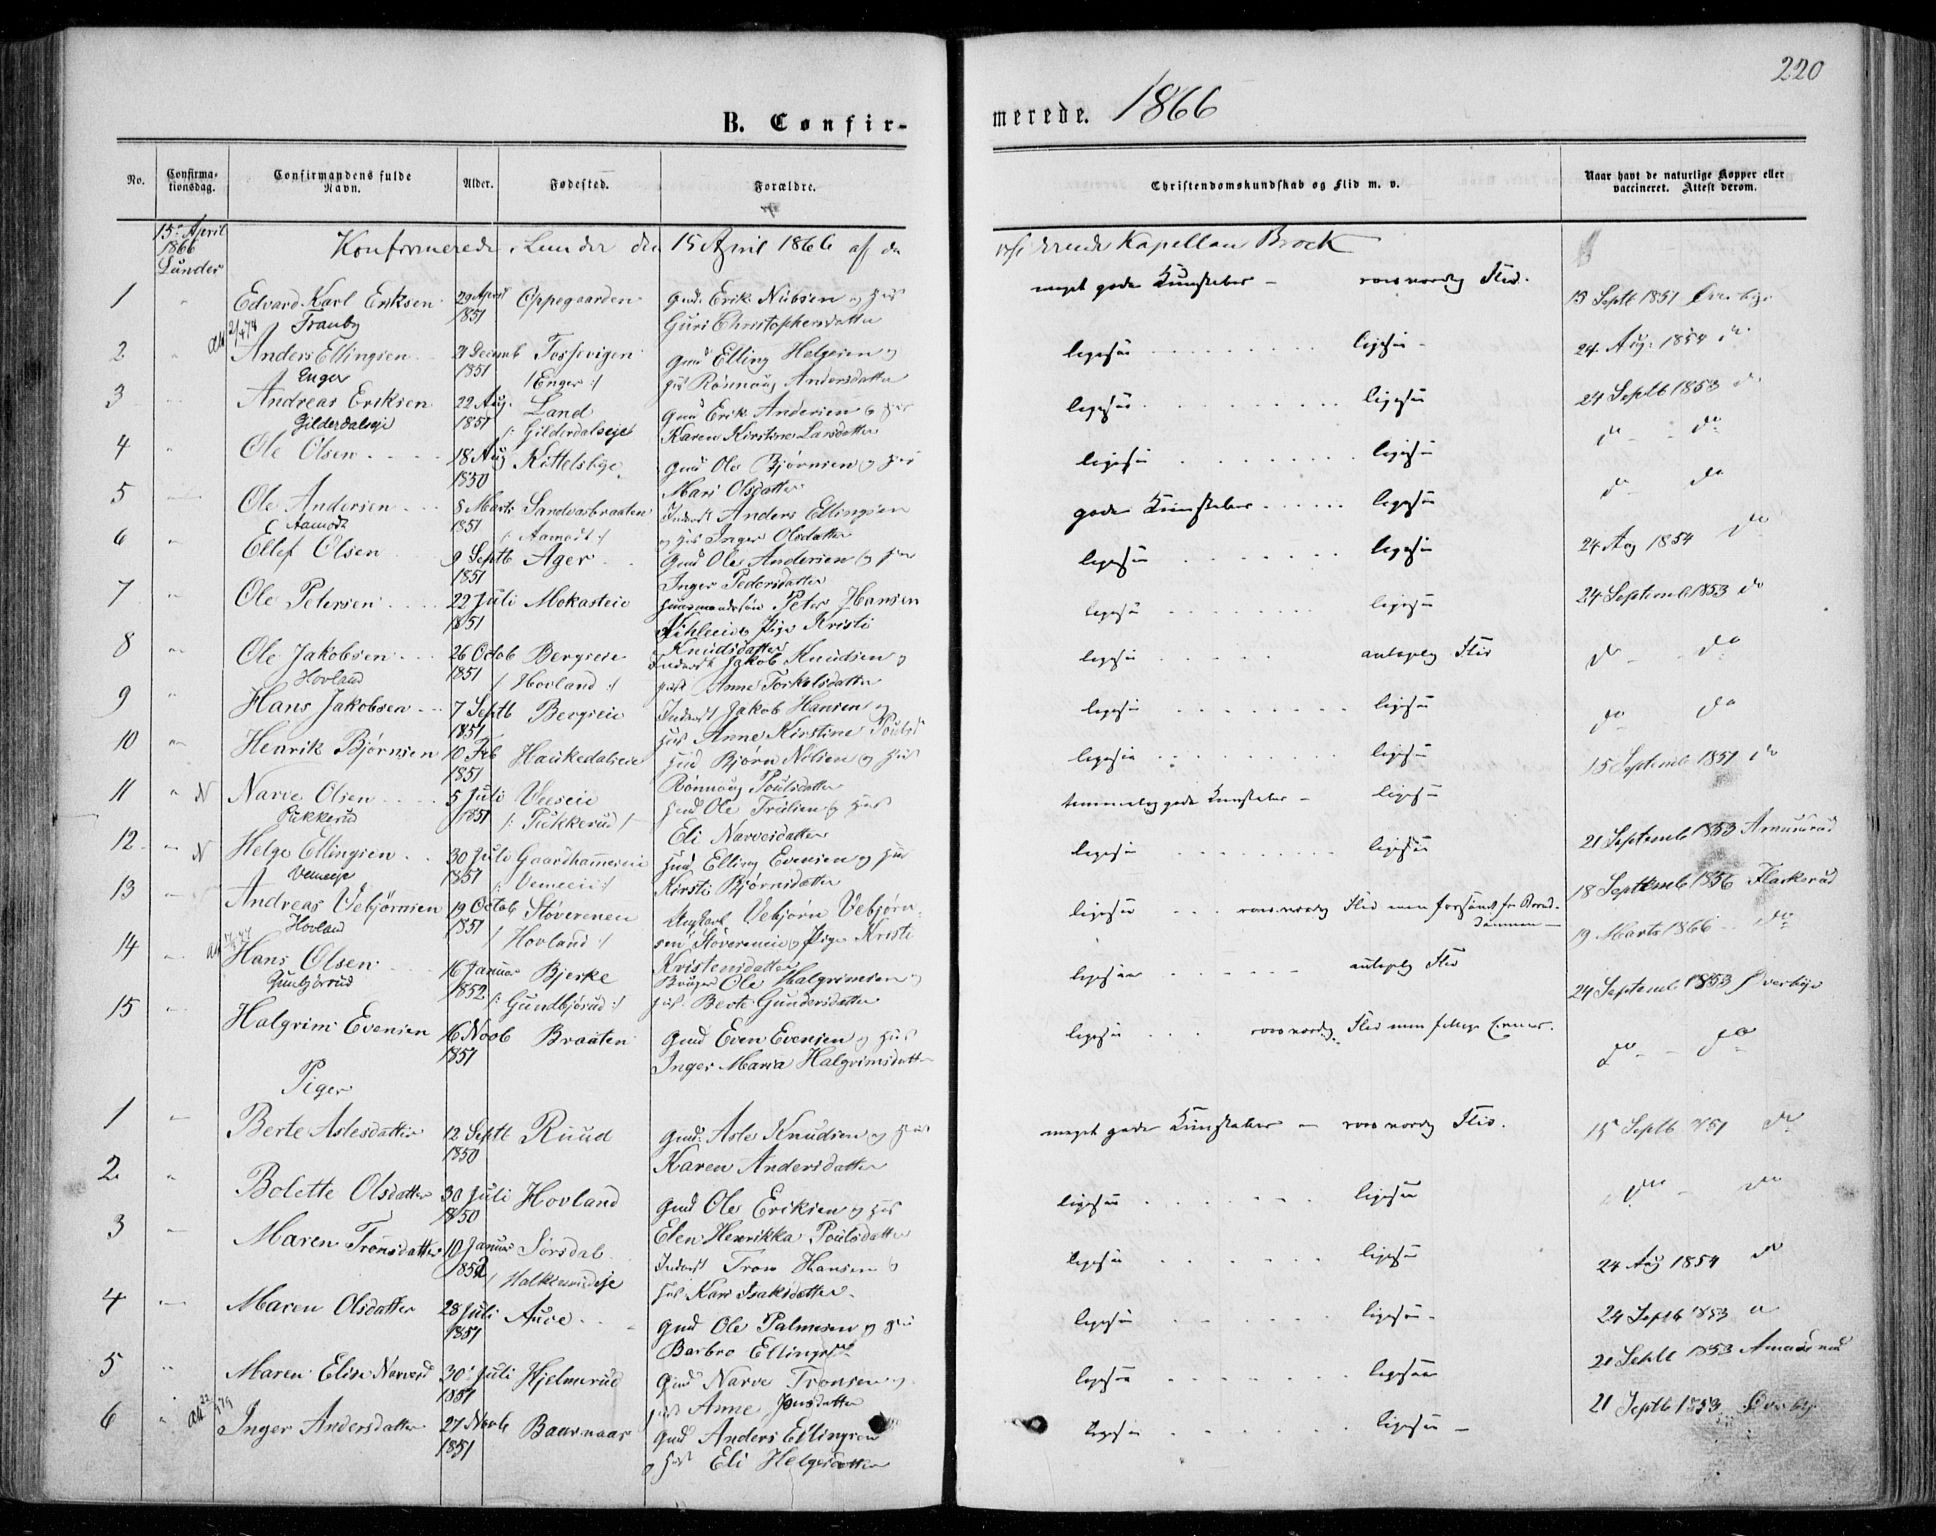 220
B. Confir-
merede. 1866
No.
Confirma-
tionsdag.
Confirmandens fulde
Navn.
Alder.
Fødested.
Forældre.
Christendomskundskab og Flid m. v.
Naar havt de naturlige Kopper eller
vaccineret. Attest derom.
15de April
1866
Lunder
Konfirmerede i Lunder den 15 April 1866 af den
residerende Kapellan Brock
1 Edvard Karl Eriksen 29 April Oppegaarden Gmd. Erik Nubsen og Hus meget gode Kundskaber - roesværdig Flid. 15 Septb 1851
Tranby 1851 Guri Christophersdatter
2 Anders Ellingsen 21 Decemb Tossevigen Gmd Elling Helgesen og ligesaa ligesaa 24 Aug. 1854 do
Enger 1851 /Enger:/ Hus Rønnaug Andersdatter
3 Andreas Eriksen 22 Aug. Land Gmd Erik Andersen og Hus ligesaa ligesaa 24 Septb 1853 do
Gilderdalseje 1851 /: Gilderdalseje Karen Kirstine Larsdatter
4 Ole Olsen 18 Aug Kittelshye Gmd Ole Bjørnsen og Hus ligesaa ligesaa do - do
1850 Mari Olsdatter
5 Ole Andersen 8 Marts Sandvasbraaten Inderst Anders Ellingsen gode Kundskaber ligesaa do do
Aamodt 1851 /: Aamodt :/ og Hus Inger Olsdatter
6 Ellef Olsen 9 Septb Ager Gmd Ole Andersen og Hus ligesaa ligesaa 24 Aug 1854 do
1851 Inger Pedersdatter
7 Ole Petersen 22 Juli Mokasteie Huusmandssøn Peter Hansen ligesaa ligesaa 24 Septemb 1853 do
1851 Pige Kristi
Knudsdatter
8 Ole Jakobsen 26 Octob Bergseie Inderst Jakob Knudsen og ligesaa antagelig Flid do - do
Hovland 1851 / Hovland :/ Hus Anne Torkelsdatter
9 Hans Jakobsen 7 Septb Bergseie Inderst Jakob Hansen og ligesaa ligesaa do - do
1851 Hus Anne Kirstine Poulsd
10 Henrik Bjørnsen 10 Feb Haukedalseie Hmd Bjørn Nilsen og Hus ligesaa ligesaa 15 Septemb 1851 do
1851 Rønnaug Poulsdatter
11 N Narve Olsen 5 Juli Veeseie Hmd Ole Trulsen og Hus temmelig gode Kundskaber - ligesaa
Pukkerud 1851 /: Pukkerud / Eli Narvesdatter
12 N Helge Ellingsen 30 Juli Gaardhammereie Hmd Elling Evensen og Hus ligesaa ligesaa 21 Septemb 1853
Vemeeje 1851 /: Vemeeie:/ Kirsti Bjørnsdatter
13 Andreas Vebjørnsen 19 Octob Støverenen Ungkarl Vebjørn Vebjørn- ligesaa roesværdig Flid men 18 Septemb 1856
Hovland 1851 / Hovland :/ sen Støvereneie og Pige Kristi 19 Marts 1866 do
Kristensdatter
14 Hans Olsen 16 Januar Bjerke Bruger Ole Halgrimsen og ligesaa antagelig Flid 24 Septemb 1853
Gunbjørrud 1852 /: Gundbjørud :/ Hus Berte Gundersdatter
15 Halgrim Evensen 16 Novb Braaten Gmd Even Evensen og Hus ligesaa roesværdig Flid men do - do
1851 Inger Maria Halgrimsdatter
Piger
1 Berte Aslesdatter 12 Septb Ruud Gmd. Asle Knudsen og Hus meget gode Kundskaber - roesværdig Flid. 15 Septb 1851 do
1850 Karen Andersdatter
2 Bolette Olsdatter 30 Juli Hovland Gmd Ole Eriksen og Hus ligesaa ligesaa do - do
1850 Elen Henrikka Poulsdatter
3 Maren Tronsdatter 10 Januar Sørsdal Inderst Tron Hansen og ligesaa ligesaa 24 Aug 1854 do
1852 Hus Kari Isaksdatter
4 Maren Olsdatter 28 Juli Aure Gmd Ole Palmesen og Hus ligesaa ligesaa 24 Septb 1853
1851 Barbro Ellingsd
5 Maren Elise Narvesd 30 Juli Hjelmerud Gmd Narve Tronsen og ligesaa ligesaa 21 Septb 1853
1851 Hus Anne Jensdatter
6 Inger Andersdatter 27 Novb Baarnaas Gmd Anders Ellingsen ligesaa ligesaa 21 Septb 1853
1851 og Hus Eli Helgesdatter